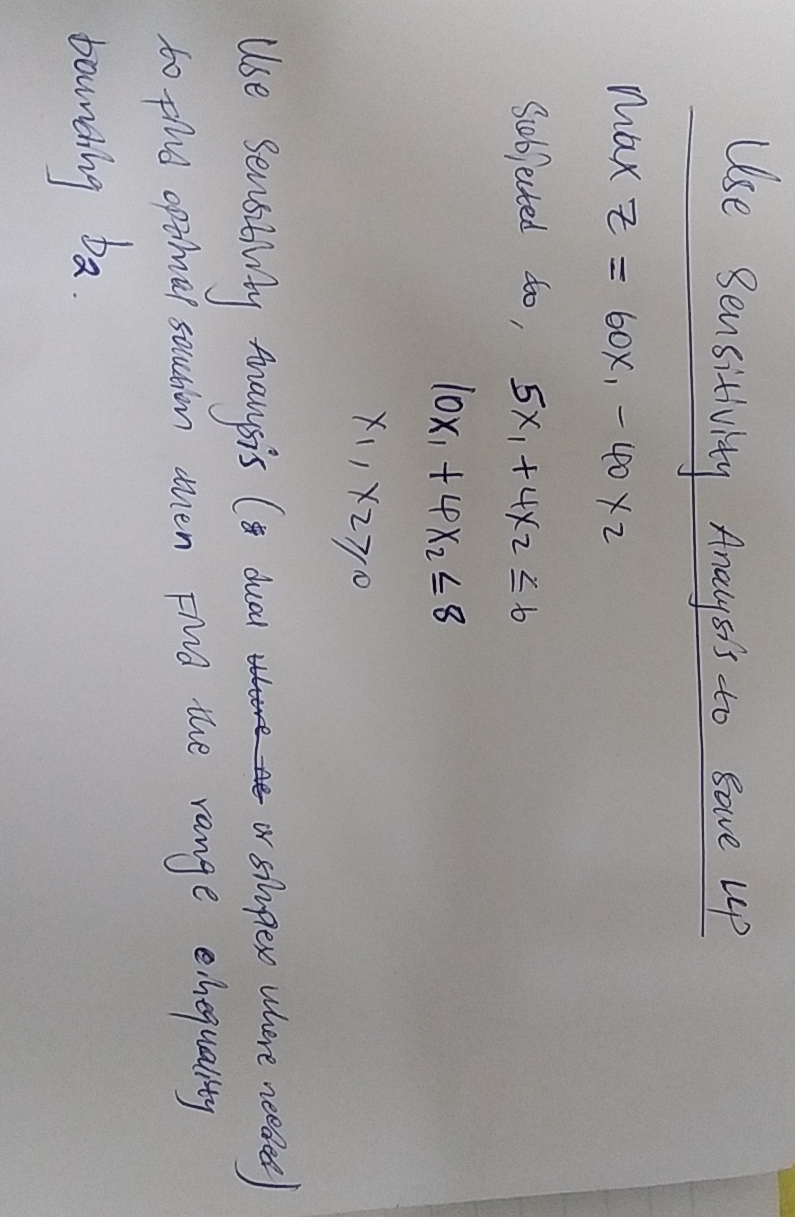 Use Sensitivity Analysis to solve LP
max Z = 60x₁ - 40x₂
Subjected to, 5x₁ + 4x₂ ≤ 6
10x₁ + 4x₂ ≤ 8
x₁, x₂ ≥ 0
Use Sensitivity Analysis (dual or simplex where needed)
to find optimal solution then Find the range inequality
bounding b₂.